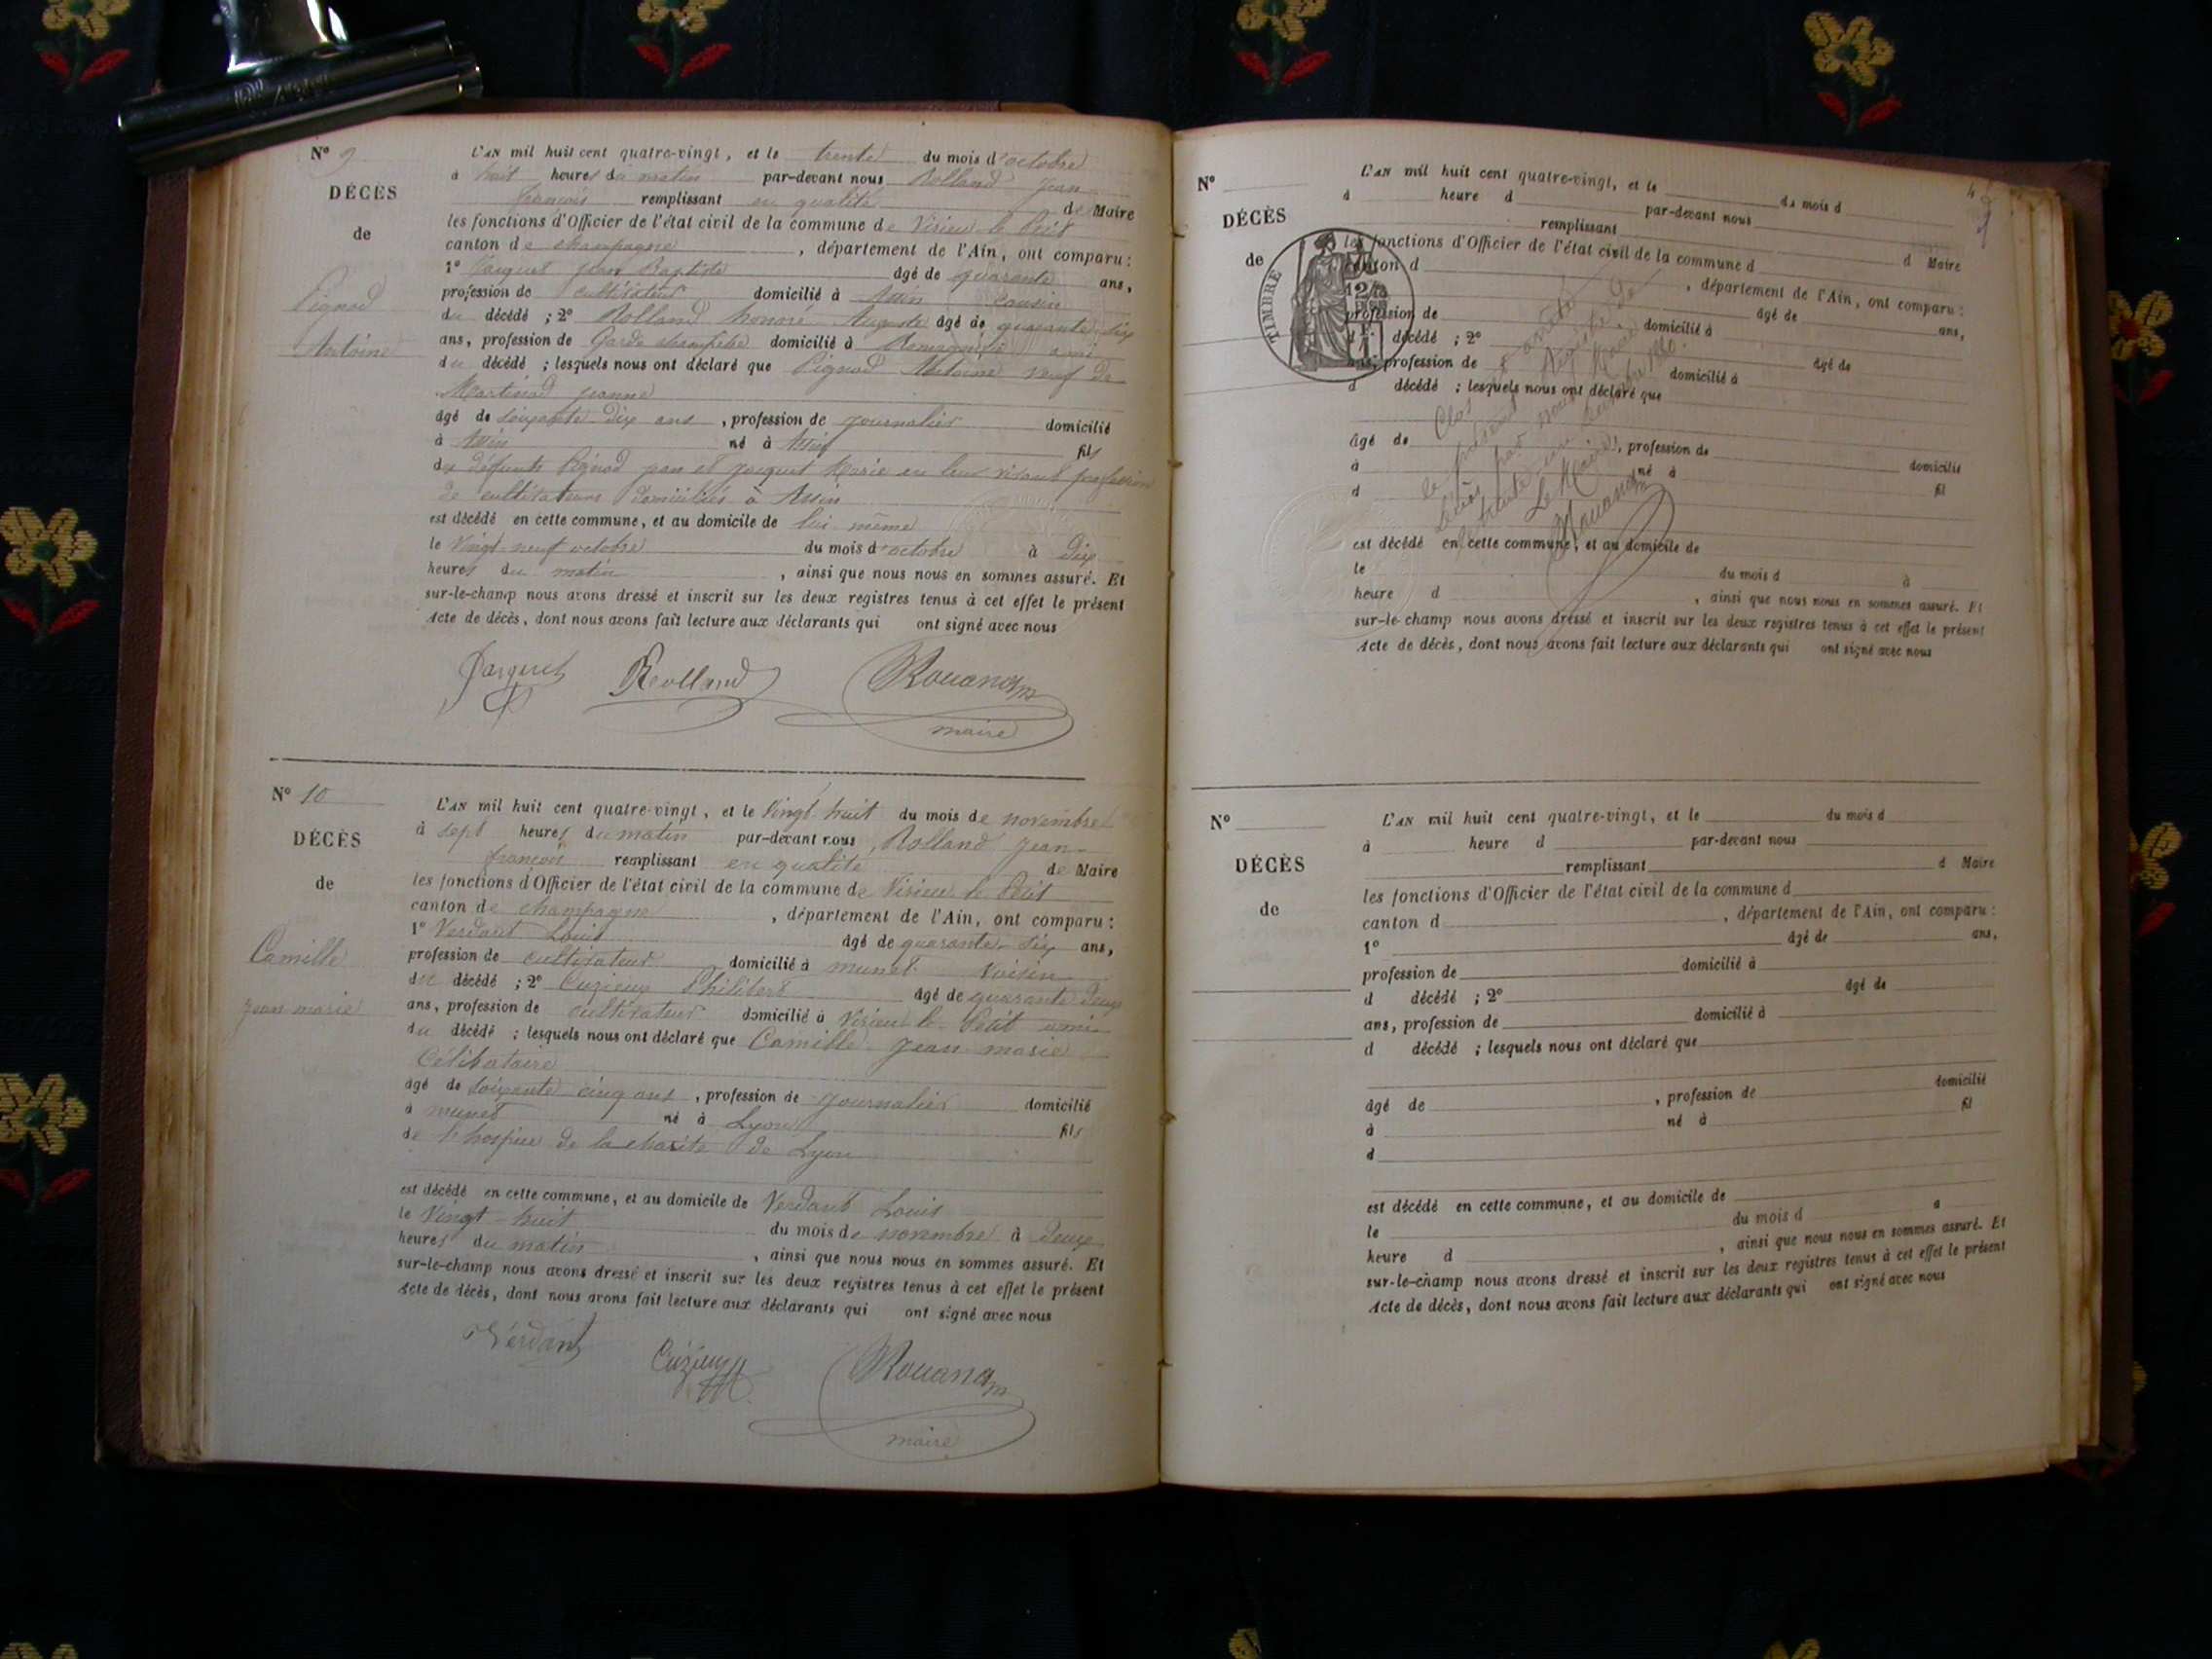 N° 9
DÉCÈS
de
Pignod
Antoine
L'AN mil huit cent quatre-vingt, et le trente du mois d'octobre
à huit heures du matin par-devant nous Rolland jean
françois remplissant en qualité de Maire
les fonctions d'Officier de l'état civil de la commune de Virieu le Petit
canton de champagne, département de l'Ain, ont comparu :
1° Jacquet jean Baptiste âgé de quarante ans,
profession de cultivateur domicilié à Assin cousin
du décédé ; 2° Rolland honoré Auguste âgé de quarante six
ans, profession de Garde champêtre domicilié à ami
du décédé ; lesquels nous ont déclaré que Pignod Antoine veuf de
Martinod jeanne
âgé de soixante-dix ans, profession de journalier domicilié
à Assin né à Assin fils
de défunts Pignod jean et jacquet Marie en leur vivant profession
de cultivateurs domiciliés à Assin
est décédé en cette commune, et au domicile de lui même
le Vingt neuf octobre du mois d'octobre à Dix
heures du matin, ainsi que nous nous en sommes assuré. Et
sur-le-champ nous avons dressé et inscrit sur les deux registres tenus à cet effet le présent
Acte de décès, dont nous avons fait lecture aux déclarants qui ont signé avec nous
Jacquet Rolland
maire
N° 10
DÉCÈS
de
Camille
jean marie
L'AN mil huit cent quatre-vingt, et le Vingt-huit du mois de novembre
à sept heures du matin par-devant nous Rolland jean
françois remplissant en qualité de Maire
les fonctions d'Officier de l'état civil de la commune de Virieu le Petit
canton de champagne, département de l'Ain, ont comparu :
1° Verdant Louis âgé de quarante six ans,
profession de cultivateur domicilié à munet Voisin
du décédé ; 2° Cuzieux Philibert âgé de quarante deux
ans, profession de cultivateur domicilié à Virieu le Petit ami
du décédé ; lesquels nous ont déclaré que Camille jean marie
Célibataire
âgé de soixante cinq ans, profession de journalier domicilié
à munet né à Lyon fils
de l'hospice de la charité de Lyon
est décédé en cette commune, et au domicile de Verdant Louis
le Vingt-huit du mois de novembre à Deux
heures du matin, ainsi que nous nous en sommes assuré. Et
sur-le-champ nous avons dressé et inscrit sur les deux registres tenus à cet effet le présent
Acte de décès, dont nous avons fait lecture aux déclarants qui ont signé avec nous
Verdant Cuzieux
maire
N°
DÉCÈS
de
TIMBRE
L'AN mil huit cent quatre-vingt, et le du mois d
à heure d par-devant nous
remplissant d Maire
les fonctions d'Officier de l'état civil de la commune d
canton d, département de l'Ain, ont comparu :
âgé de ans,
profession de domicilié à
d décédé ; 2° âgé de
ans, profession de domicilié à
d décédé ; lesquels nous ont déclaré que
Clos et arrêté
le présent Registre de
Décès par nous Maire
le trente-un décembre 1880.
Le Maire
âgé de, profession de domicilié
à né à fil
d
est décédé en cette commune, et au domicile de
le du mois d à
heure d, ainsi que nous nous en sommes assuré. Et
sur-le-champ nous avons dressé et inscrit sur les deux registres tenus à cet effet le présent
Acte de décès, dont nous avons fait lecture aux déclarants qui ont signé avec nous
N°
DÉCÈS
de
L'AN mil huit cent quatre-vingt, et le du mois d
à heure d par-devant nous
remplissant d Maire
les fonctions d'Officier de l'état civil de la commune d
canton d, département de l'Ain, ont comparu :
1° âgé de ans,
profession de domicilié à
d décédé ; 2° âgé de
ans, profession de domicilié à
d décédé ; lesquels nous ont déclaré que
âgé de, profession de domicilié
à né à fil
d
est décédé en cette commune, et au domicile de
le du mois d à
heure d, ainsi que nous nous en sommes assuré. Et
sur-le-champ nous avons dressé et inscrit sur les deux registres tenus à cet effet le présent
Acte de décès, dont nous avons fait lecture aux déclarants qui ont signé avec nous